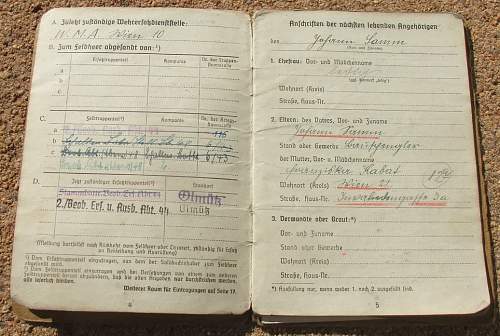 A. Zuletzt zuständige Wehrersatzdienststelle:
W. M. A. Wien 10
B. Zum Feldheer abgesandt von:¹)
Ersatztruppenteil
Kompanie
Nr. der Truppen-
stammrolle
a
b
c
C.
Feldtruppenteil²)
Kompanie
Nr. der Kriegs-
stammrolle
a
b
c
D.
Jetzt zuständiger Ersatztruppenteil³)
Standort
Stammkomp. Beob. Ers. Abt. 44
Olmütz
2./Beob. Ers. u. Ausb. Abt. 44
Olmütz
(Meldung dortselbst nach Rückkehr vom Feldheer oder Lazarett, zuständig für Ersatz
an Bekleidung und Ausrüstung)
¹) Vom Ersatztruppenteil einzutragen, von dem der Soldbuchinhaber zum Feldheer
abgesandt wird.
²) Vom Feldtruppenteil einzutragen und bei Versetzungen von einem zum anderen
Feldtruppenteil derart abzuändern, daß die alten Angaben nur durchstrichen werden,
also leserlich bleiben.
Weiterer Raum für Eintragungen auf Seite 17.
4
Anschriften der nächsten lebenden Angehörigen
des Johann Samm
(Vor- und Zuname)
1. Ehefrau: Vor- und Mädchenname
ledig
Wohnort (Kreis)
Straße, Haus-Nr.
2. Eltern: des Vaters, Vor- und Zuname
Johann Samm
Stand oder Gewerbe Bauspengler
der Mutter, Vor- u. Mädchenname
Franziska Kabat
Wohnort (Kreis) Wien 21
Straße, Haus-Nr.
3. Verwandte oder Braut:*)
Vor- und Zuname
Stand oder Gewerbe
Wohnort (Kreis)
Straße, Haus-Nr.
*) Ausfüllung nur, wenn weder 1. noch 2. ausgefüllt sind.
5